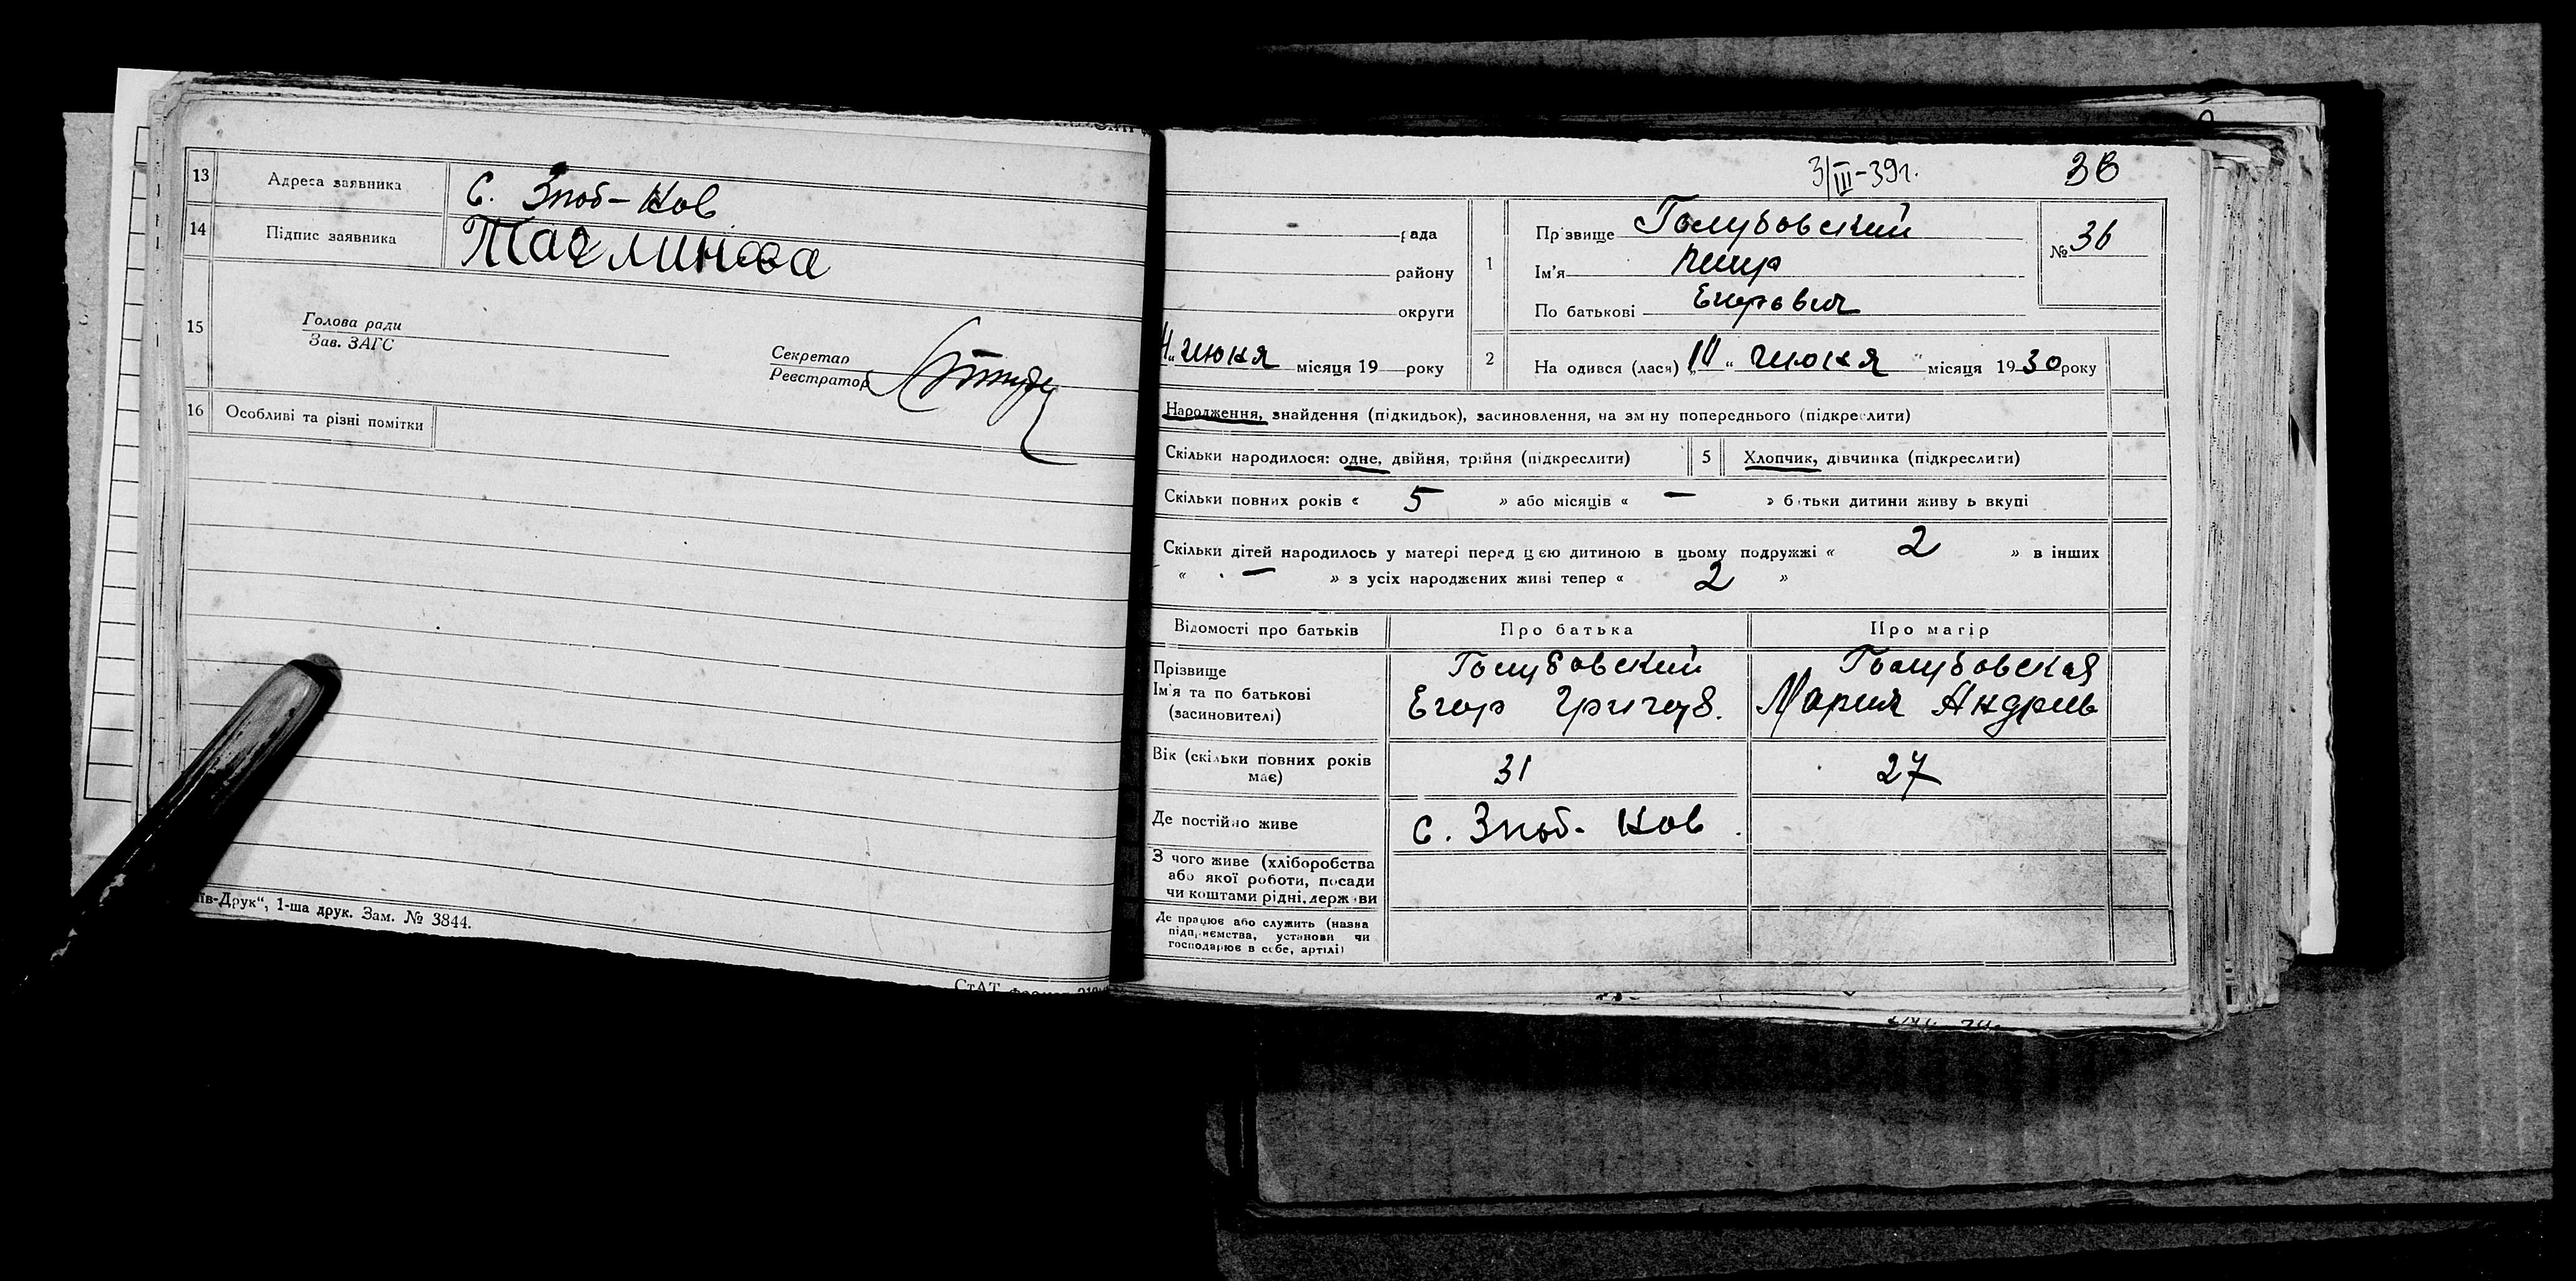 13 Адреса заявника С. Зноб-Нов
14 Підпис заявника
15 Голова ради
Зав. ЗАГС
Секретар
Реєстратор
16 Особливі та різні помітки
ів-Друк", 1-ша друк. Зам. № 3844.
СтАТ
3/III-39г. 36
рада
району
округи
июня місяця 19 року
1 Прізвище Голубовский
Ім'я Петр
По батькові Егорович
№ 36
2 На одився (лася) " июня " місяця 1930 року
Народження, знайдення (підкидьок), засиновлення, на зм ну попереднього (підкреслити)
Скільки народилося: одне, двійня, трійня (підкреслити) 5 Хлопчик, дівчинка (підкреслити)
Скільки повних років « 5 » або місяців « – » б тьки дитини живу ь вкупі
Скільки дітей народилось у матері перед цією дитиною в цьому подружжі « 2 » в інших
« – » з усіх народжених живі тепер « 2 »
Відомості про батьків Про батька Про матір
Прізвище Голубовский Голубовская
Ім'я та по батькові Егор Григор. Мария Андреев
(засиновителі)
Вік (скільки повних років має) 31 27
Де постійно живе с. Зноб-Нов.
З чого живе (хліборобства
або якої роботи, посади
чи коштами рідні, держ ви
Де працює або служить (назва
підприємства, установи чи
господарює в себе, артілі)